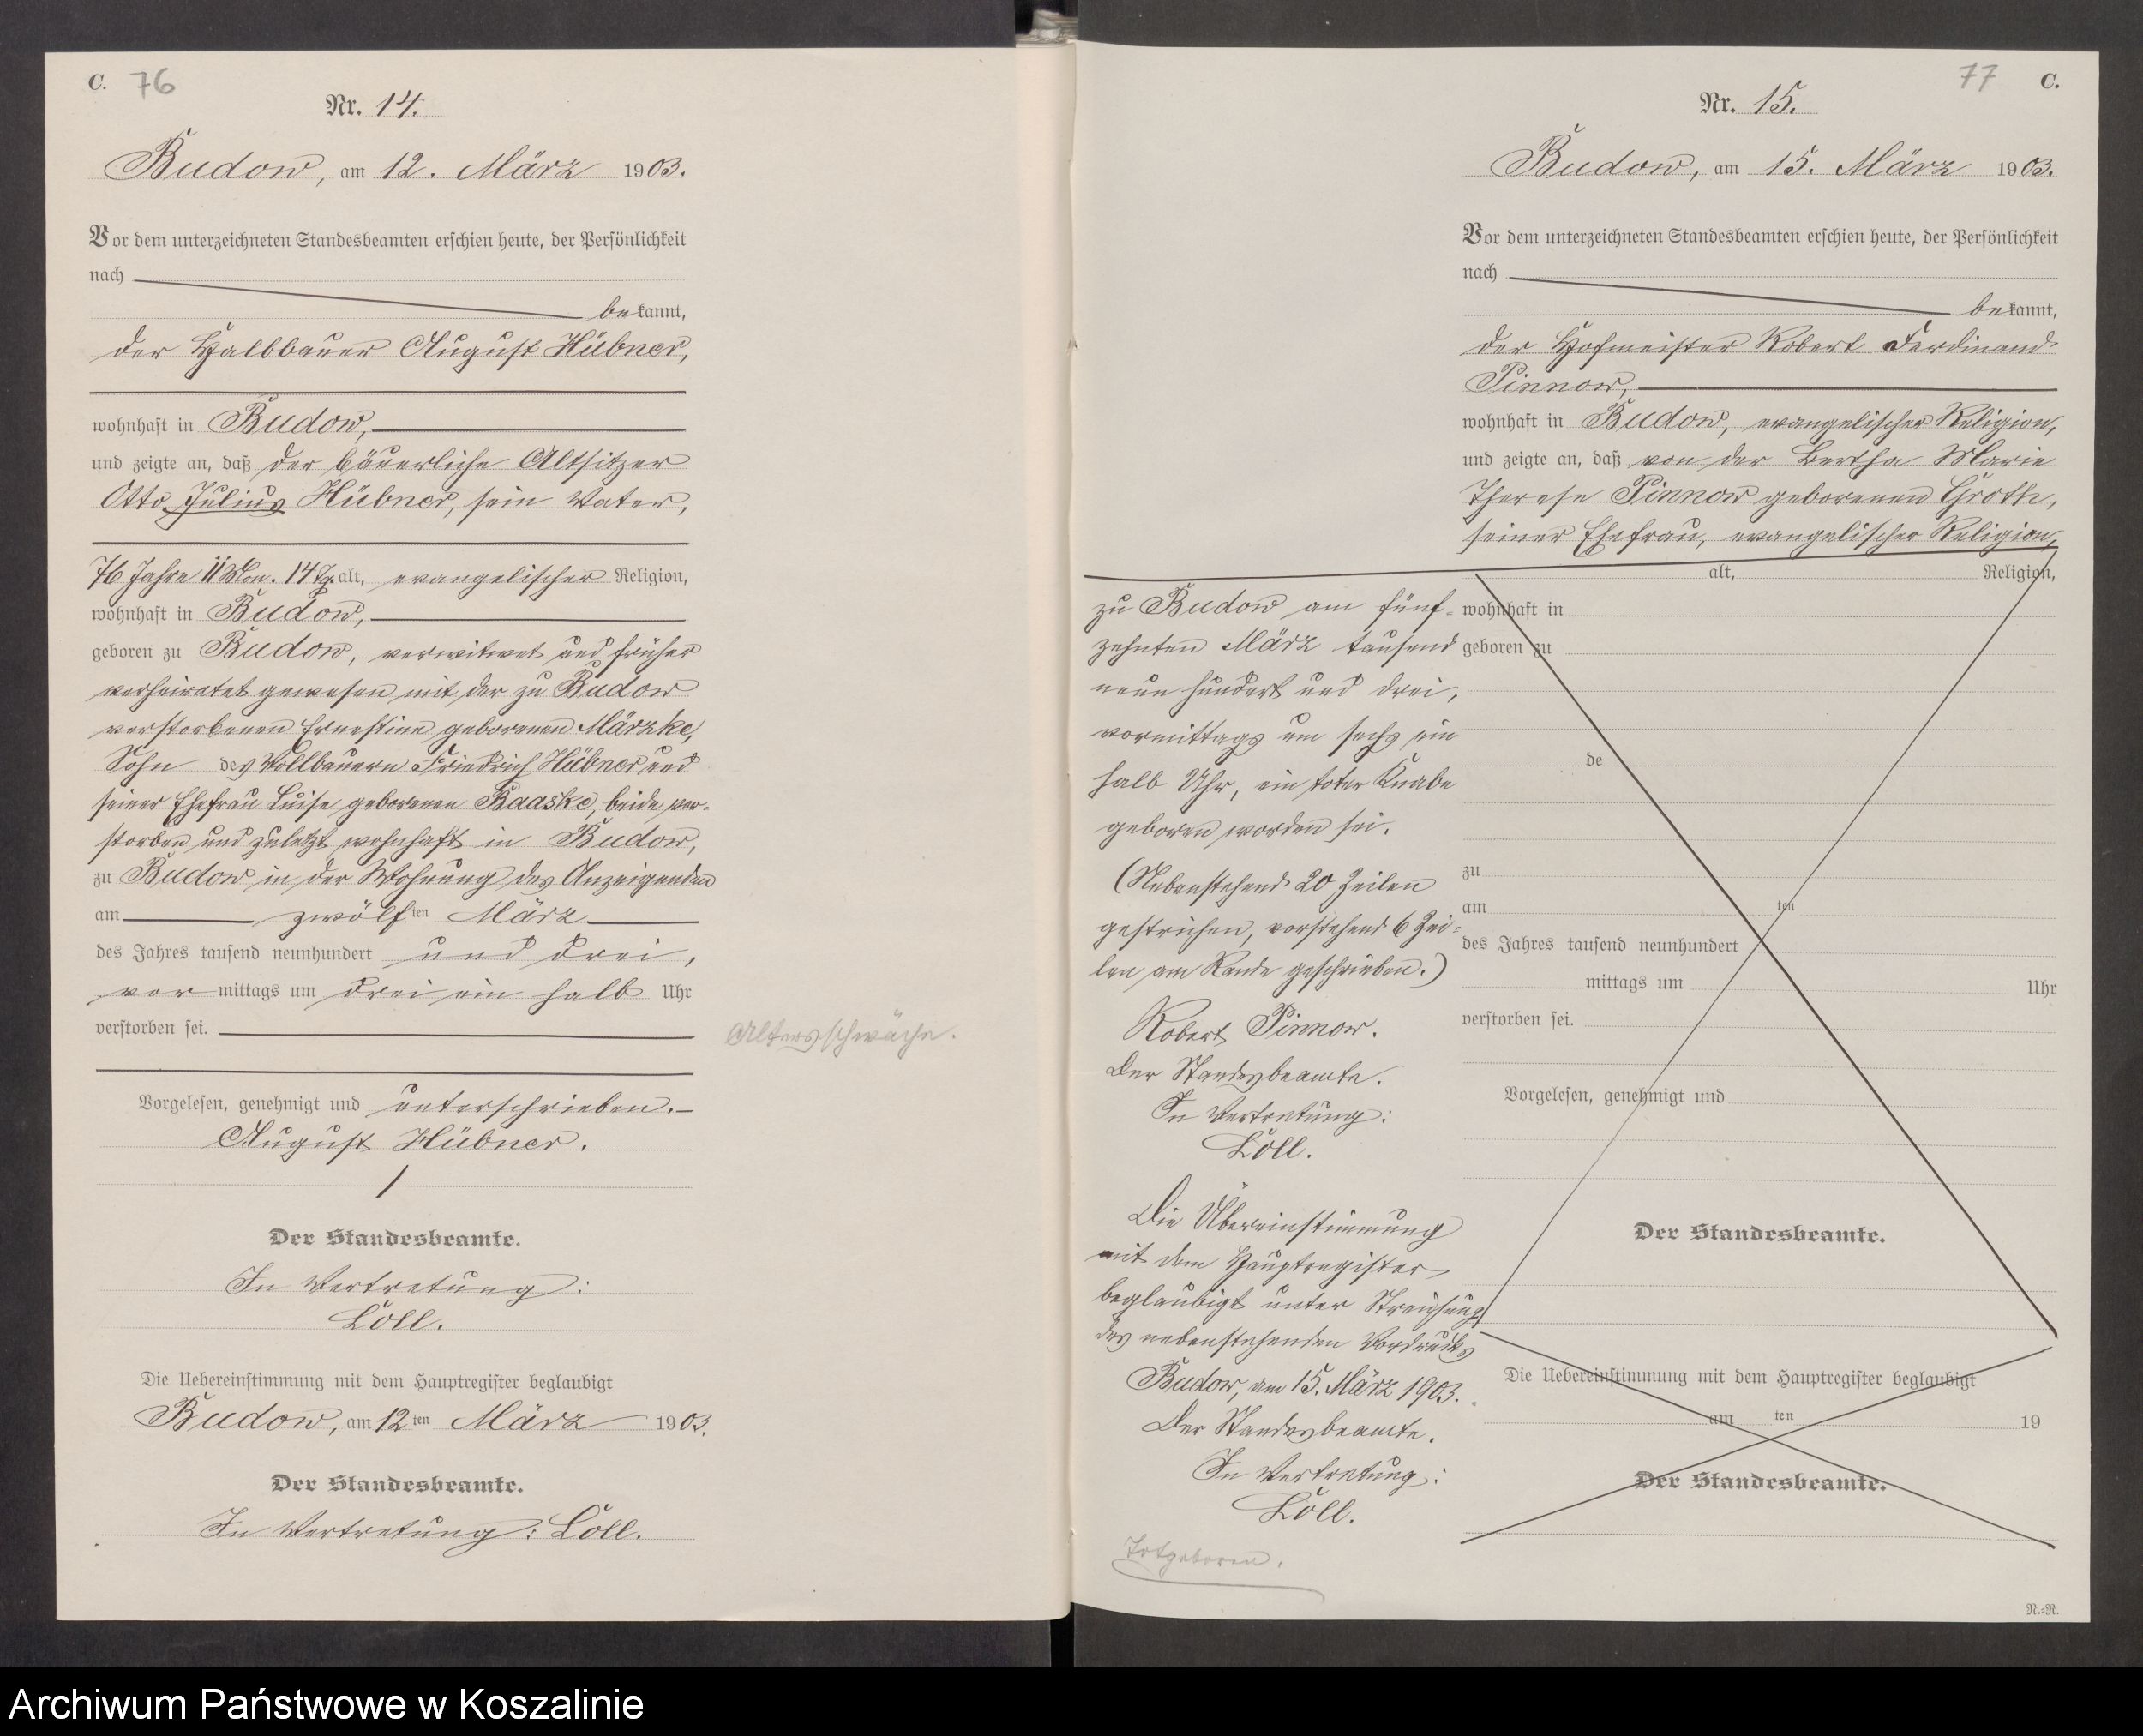 C. 76
Nr. 14.
Budow, am 12. März 1903.
Vor dem unterzeichneten Standesbeamten erschien heute, der Persönlichkeit
nach
bekannt,
der Halbbauer August Hübner,
wohnhaft in Budow,
und zeigte an, daß der bäuerliche Altsitzer
Otto Julius Hübner, sein Vater,
76 Jahre 11 Mon. 14 Tg. alt, evangelischer Religion,
wohnhaft in Budow,
geboren zu Budow, verwitwet und früher
verheiratet gewesen mit der zu Budow
verstorbenen Ernestine geborenen Märzke,
Sohn des Vollbauern Friedrich Hübner und
seiner Ehefrau Luise geborenen Baaske, beide ver-
storben und zuletzt wohnhaft in Budow,
zu Budow in der Wohnung des Anzeigenden
am zwölften März
des Jahres tausend neunhundert und drei,
vormittags um drei ein halb Uhr
verstorben sei.
Altersschwäche.
Vorgelesen, genehmigt und unterschrieben.
August Hübner.
Der Standesbeamte.
In Vertretung:
Löll.
Die Uebereinstimmung mit dem Hauptregister beglaubigt
Budow, am 12ten März 1903.
Der Standesbeamte.
In Vertretung: Löll.
77 C.
Nr. 15.
Budow, am 15. März 1903.
Vor dem unterzeichneten Standesbeamten erschien heute, der Persönlichkeit
nach
bekannt,
der Hofmeister Robert Ferdinand
Pinnow,
wohnhaft in Budow, evangelischer Religion,
und zeigte an, daß von der Bertha Marie
Therese Pinnow geborenen Groth,
seiner Ehefrau, evangelischer Religion,
zu Budow am fünf-
zehnten März tausend
neun hundert und drei,
vormittags um sechs ein
halb Uhr, ein toter Knabe
geboren worden sei.
(Nebenstehend 20 Zeilen
gestrichen, vorstehend 6 Zei-
len am Rande geschrieben.)
Robert Pinnow.
Der Standesbeamte.
In Vertretung:
Löll.
Die Übereinstimmung
mit dem Hauptregister
beglaubigt unter Streichung
des nebenstehenden Vordrucks
Budow, am 15. März 1903.
Der Standesbeamte.
In Vertretung:
Löll.
Totgeboren.
alt, Religion,
wohnhaft in
geboren zu
de
zu
am ten
des Jahres tausend neunhundert
mittags um Uhr
verstorben sei.
Vorgelesen, genehmigt und
Der Standesbeamte.
Die Uebereinstimmung mit dem Hauptregister beglaubigt
am ten 19
Der Standesbeamte.
N.-R.
Archiwum Państwowe w Koszalinie